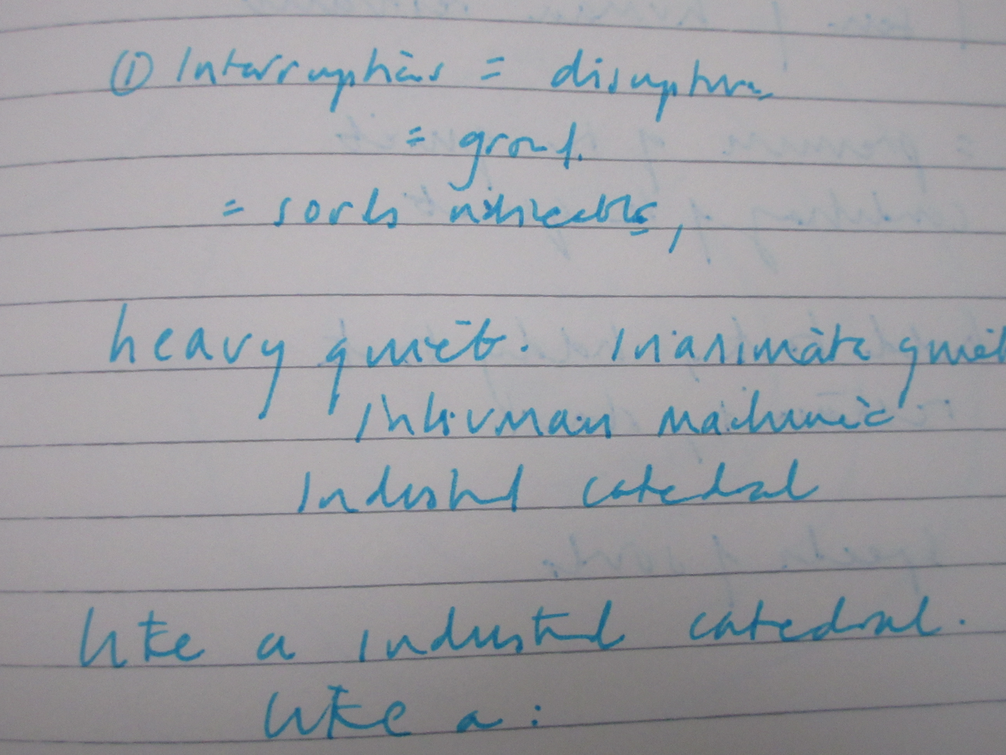 ① Interruptions = disruption
= ground.
= sorts noticeable,
heavy quiet. Inanimate quiet
Inhuman machinic
Industrial catedral
like a industrial catedral.
like a: